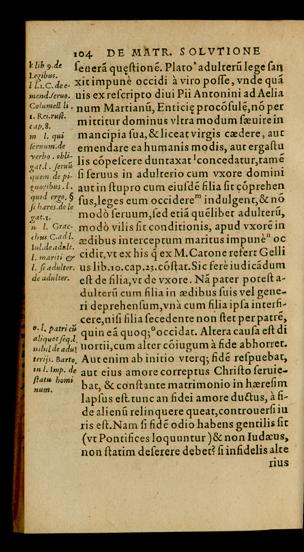 104 DE MATR. SOLVTIONE
seuerā quęstionē. Plato k adulterū lege san
xit impunè occidi à viro posse, vnde quā
uis ex rescripto diui Pii Antonini ad Aelia
num Martianū, Enticię procōsulē, nō per
mittitur dominus vltra modum sæuire in
mancipia sua, & liceat virgis cædere, aut
emendare ea humanis modis, aut ergastu
lis cōpescere duntaxat l concedatur, tamē
si seruus in adulterio cum vxore domini
aut in stupro cum eiusdē filia sit cōprehen
sus, leges eum occidere m indulgent, & nō
modò seruum, sed etiā quēlibet adulterū,
modò vilis sit conditionis, apud vxorē in
ædibus interceptum maritus impunè n oc
cidit, vt ex his q̃ ex M. Catone refert Gelli
us lib.10.cap.23. cōstat. Sic ferè iudicādum
est de filia, vt de vxore. Nā pater potest a-
dulterū cum filia in ædibus suis vel gene-
ri deprehensum, vnà cum filia ipsa interfi-
cere, nisi filia secedente non stet per patrē,
quin eā quoq; o occidat. Altera causa est di
uortii, cum alter cōiugum à fide abhorret.
Aut enim ab initio vterq; fidē respuebat,
aut eius amore correptus Christo seruie-
bat, & constante matrimonio in hæresim
lapsus est. tunc an fidei amore ductus, à fi-
de alienū relinquere queat, controuersi iu
ris est. Nam si fidē odio habens gentilis sit
(vt Pontifices loquuntur) & non Iudæus,
non statim deserere debet? si infidelis alte
rius
k lib 9. de
Legibus.
l l. 1. C. de e-
mend. seruo.
Columell li.
1. Res rust.
cap. 8.
m l. qui
seruum. de
verbo. obli-
gat. l. seruū
quem. de pi-
gnoribus. l.
quid ergo. §
si hæres. de le
gat. 1.
n l. Grac-
chus C. ad l.
Iul. de adult.
l. mariti &
l. si adulter.
de adulter.
o. l. patri cū
aliquot seq. l.
iul. de adul
terijs. Barto.
in l. Imp. de
statu homi
num.